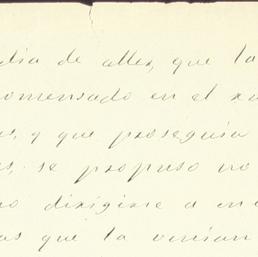 dia de ellos, que la
omensado en el
as, y que proseguia
es, se propuso no
no dirigirse a
as que la venian